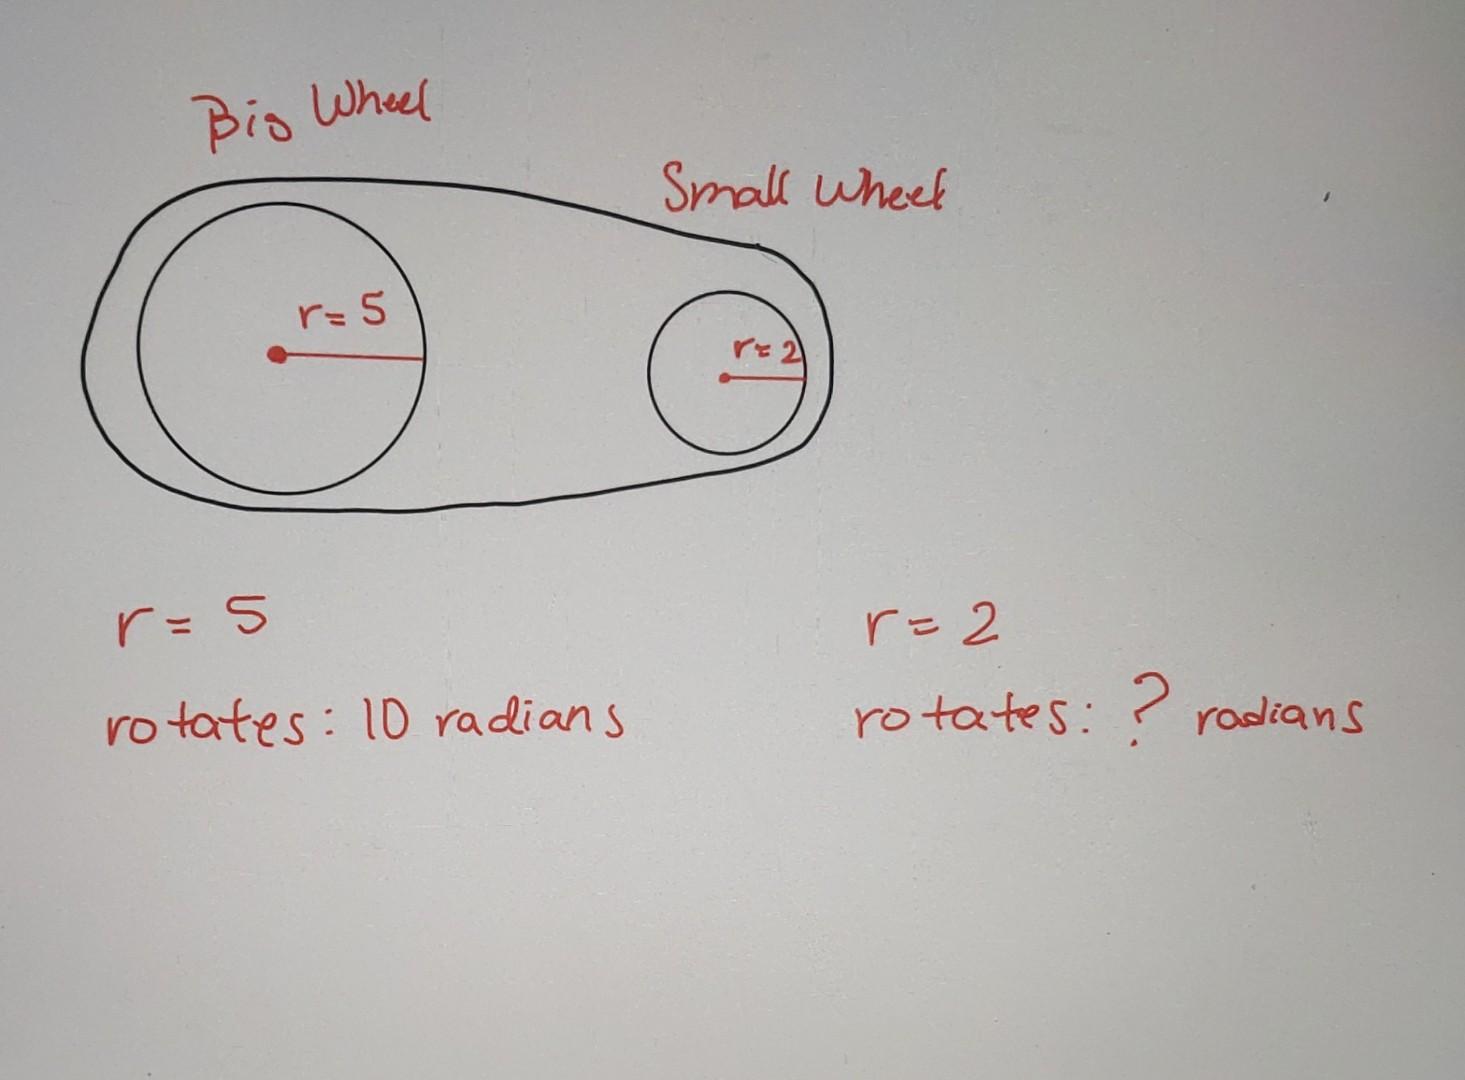 Big Wheel
Small Wheel
r = 5
r = 2
r = 5
r = 2
rotates: 10 radians
rotates: ? radians